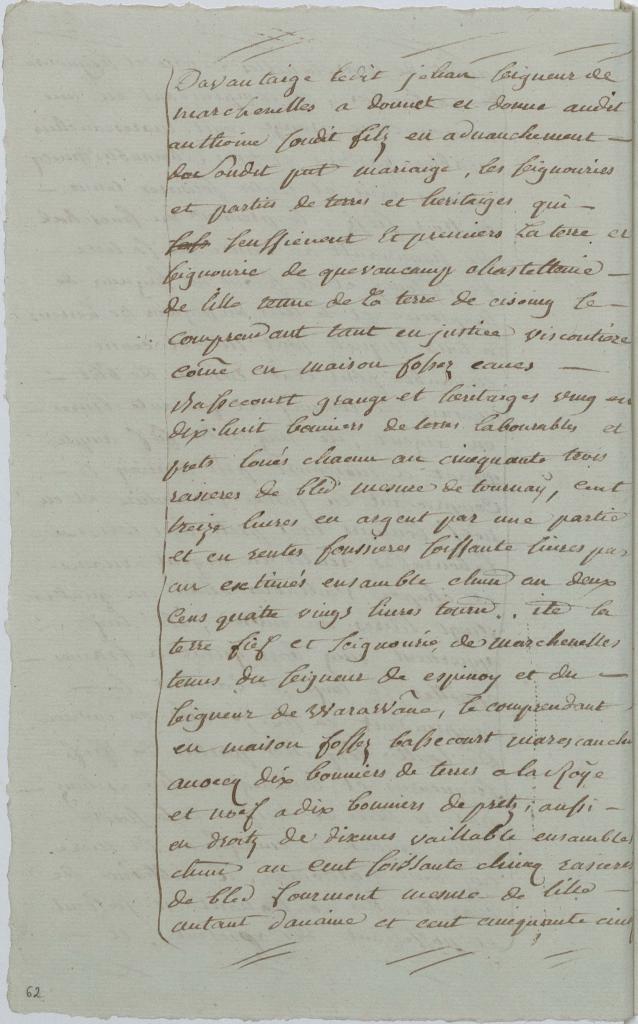 Davantaige ledit jehan seigneur de
marchenelles a donnet et donne audit
anthoine soudit filz en advanchement —
de soudit pnt mariaige, les seignouries
et parties de terres et heritaiges qui —
senssieuent Et premiers La terre et
seignourie de quevaucamp chastellenie —
de lille tenue de la terre de cisoing se
comprendant tant en justice viscontiere
come en maison fossez eaues —
bassecourt grange et heritaiges vingt et
dix huit bonniers de terres labourables et
prets loués chacun an cinequante trois
rasieres de bled mesure de tournay, cent
treize livres en argent par une partie
et en rentes foussieres soissante livres par
an extimés ensamble chun an deux
cens quatre vings livres tourn. ite la
terre fief et seignourie de marchenelles
tenus du seigneur de espinoy et du —
seigneur de Warawane, se comprendant
en maison fossez bassecourt marescauchie
avoecq dix bonniers de terres a la Roÿe
et noef a dix bonniers de pretz, aussi —
en droitz de dixmes vaillable ensamble
chun an cent soissante chincq rasieres
de bled fourment mesure de lille —
autant davaine et cent cinequante cincq
62